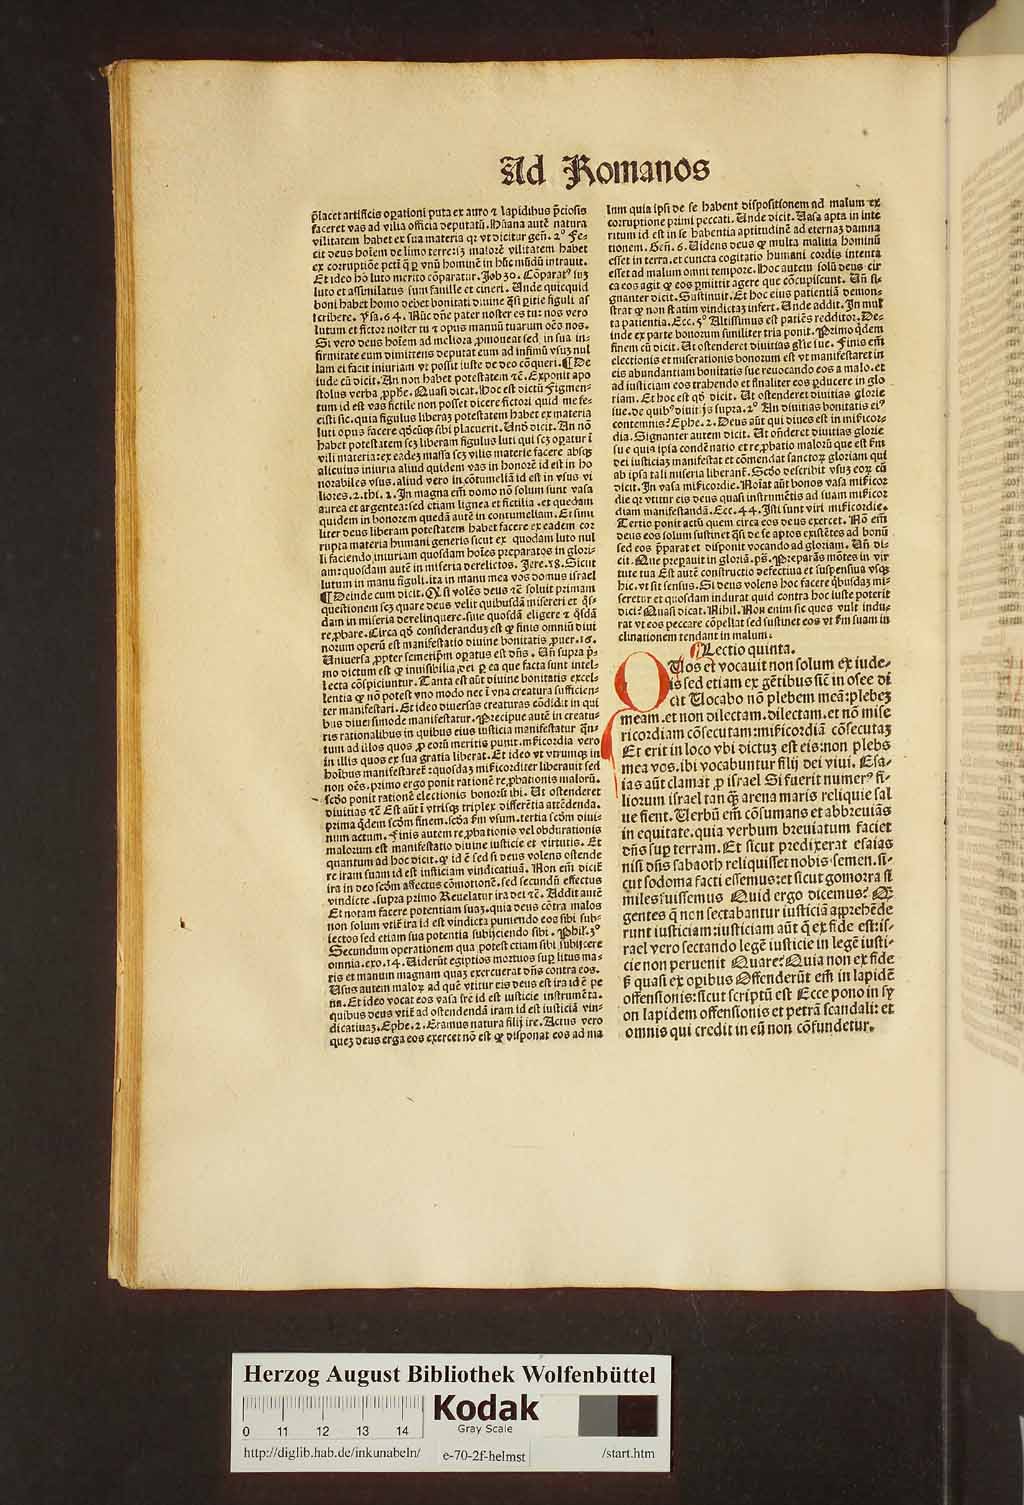 Ad Romanos
p̃lacet artificis oꝑationi puta ex auro ⁊ lapidibus p̃ciosis
faceret vas ad vilia officia deputatũ. Hũana autẽ natura
vilitatem habet ex sua materia qꝛ vt dicitur geñ. 2° Fe-
cit deus hoĩem de limo terre: iꝫ maiorẽ vilitatem habet
ex corruptiõe pctĩ q̃ ꝑ vnũ hominẽ in hũc mũdũ intrauit.
Et ideo hõ luto merito cõparatur. Job 30. Cõparatꝰ suꝫ
luto et assimilatus sum fauille et cineri. Unde quicquid
boni habet homo debet bonitati diuine q̃si p̃rie figuli as
scribere. P̃sa. 64. Nũc dñe pater noster es tu: nos vero
lutum et fictor noster tu ⁊ opus manuũ tuarum oẽs nos.
Si vero deus hoĩem ad meliora ꝓmoueat sed in sua in-
firmitate eum dimittens deputat eum ad infimũ vsuꝫ nul
lam ei facit iniuriam vt possit iuste de deo cõqueri. ¶ De
inde cũ dicit. An non habet potestatem ⁊c̃. Exponit apo
stolus verba ꝓphe. Quasi dicat. Hoc est dictũ Figmen-
tum id est vas fictile non posset dicere fictori quid me fe-
cisti sic. quia figulus liberaꝫ potestatem habet ex materia
luti opus facere qd̃cũqꝫ sibi placuerit. Unð dicit. An nõ
habet potestatem scꝫ liberam figulus luti qui scꝫ opatur ĩ
vili materia: ex eadeꝫ massa scꝫ vilis materie facere absqꝫ
alicuius iniuria aliud quidem vas in honorẽ id est in ho
norabiles vsus. aliud vero in cõtumeliã id est in vsus vi
liores. 2. thi. 2. In magna em̃ domo nõ solum sunt vasa
aurea et argentea: sed etiam lignea et fictilia. et quedam
quidem in honorem quedã autẽ in contumeliam. Et simi
liter deus liberam potestatem habet facere ex eadem cor
rupta materia humani generis sicut ex quodam luto nul
li faciendo iniuriam quosdam hoĩes preparatos in glori-
am: quosdam autẽ in miseria derelictos. Jere. 18. Sicut
lutum in manu figuli. ita in manu mea vos domus israel
¶ Deinde cum dicit. Qꝛ si volẽs deus ⁊c̃ soluit primam
questionem scꝫ quare deus velit quibusdã misereri et q̃s-
dam in miseria derelinquere. siue quosdã eligere ⁊ q̃sdã
reꝓbare. Circa qð consideranduꝫ est ꝙ finis omniũ diui
norum operũ est manifestatio diuine bonitatis ꝓuer. 16.
Uniuersa ꝓpter semetip̃m oꝑatus est dñs. Uñ supra p̃-
mo dictum est ꝙ inuisibilia dei ꝑ ea que facta sunt intel-
lecta cõspiciuntur. Tanta est aũt diuine bonitatis excel-
lentia ꝙ nõ potest vno modo nec ĩ vna creatura sufficien-
ter manifestari. Et ideo diuersas creaturas cõdidit in qui
bus diuersimode manifestatur. Precipue autẽ in creatu-
ris rationalibus in quibus eius iusticia manifestatur q̃n-
tum ad illos quos ꝓ eorũ meritis punit. miꝑicordia vero
in illis quos ex sua gratia liberat. Et ideo vt vtrũqꝫ in
hoĩbus manifestaret̃: quosdaꝫ miẽricorditer liberauit sed
non oẽs. primo ergo ponit rationẽ reꝓbationis malorũ.
scðo ponit rationẽ electionis bonorũ ibi. Ut ostenderet
diuitias ⁊c̃ Est aũt ĩ vtrisqꝫ triplex differẽtia attẽdenda.
prima q̃dem scðm finem. scða ẽm vsum. tertia scðm diui-
num actum. Finis autem reꝓbationis vel obdurationis
malorum est manifestatio diuine iusticie et virtutis. Et
quantum ad hoc dicit. ꝙ id ẽ sed si deus volens ostende
re iram suam id est iusticiam vindicatiuã. Non em̃ dicit̃
ira in deo scðm affectus cõmotionẽ. sed secundũ effectus
vindicte. supra primo Reuelatur ira dei ⁊c̃. Addit autẽ
Et notam facere potentiam suaꝫ. quia deus cõtra malos
non solum vtit̃ ira id est vindicta puniendo eos sibi sub-
iectos sed etiam sua potentia subijciendo sibi. Phil. 3°
Secundum operationem qua potest etiam sibi subijcere
omnia. exo. 14. Uiderũt egiptios mortuos sup̃ litus ma-
ris et manum magnam quaꝫ exercuerat dñs contra eos.
Usus autem maloꝝ ad quẽ vtitur eis deus est ira id ẽ pe
na. Et ideo vocat eos vasa ire id est iusticie instrumẽta.
quibus deus vtit̃ ad ostendendã iram id est iusticiã vin-
dicatiuaꝫ. Ephe. 2. Eramus natura filij ire. Actus vero
queꝫ deus erga eos exercet nõ est ꝙ disponat eos ad ma
lum quia ipsi de se habent dispositionem ad malum ex
corruptione primi peccati. Unde dicit. Uasa apta in inte
ritum id est in se habentia aptitudinẽ ad eternaꝫ damna
tionem. Geñ. 6. Uidens deus ꝙ multa malitia hominũ
esset in terra. et cuncta cogitatio humani cordis intenta
esset ad malum omni tempore. Hoc autem solũ deus cir
ca eos agit ꝙ eos ꝑmittit agere que cõcupiscunt. Uñ si-
gnanter dicit. Sustinuit. Et hoc eius patientiã demon-
strat ꝙ non statim vindictaꝫ infert. Unde addit. In mul
ta patientia. Ecc. 5° Altissimus est patiẽs redditor. De-
inde ex parte bonorum similiter tria ponit. Primo q̃dem
finem cũ dicit. Ut ostenderet diuitias gl̃ie sue. Finis em̃
electionis et miserationis bonorum est vt manifestaret in
eis abundantiam bonitatis sue reuocando eos a malo. et
ad iusticiam eos trahendo et finaliter eos ꝓducere in glo
riam. Et hoc est qð dicit. Ut ostenderet diuitias glorie
sue. de quibꝰ dixit js supra. 2° An diuitias bonitatis eiꝰ
contemnis? Ephe. 2. Deus aũt qui diues est in miẽricor-
dia. Signanter autem dicit. Ut oñderet diuitias glorie
su e quia ipsa condẽnatio et reꝓbatio malorũ que est ẽm
dei iusticiaꝫ manifestat et cõmendat sanctoꝝ gloriam qui
ab ipsa tali miseria liberant̃. Scðo describit vsuꝫ eoꝝ cũ
dicit. In vasa miẽricordie. Noĩat aũt bonos vasa miẽricor
die qꝛ vtitur eis deus quasi instrumẽtis ad suam miẽricor
diam manifestandã. Ecc. 44. Isti sunt viri miẽricordie.
Tertio ponit actũ quem circa eos deus exercet. Nõ em̃
deus eos solum sustinet q̃si de se aptos existẽtes ad bonũ
sed eos p̃parat et disponit vocando ad gloriam. Uñ di-
cit. Que prepauit in gloriã. ps̃. Preparãs mõtes in vir
tute tua Est autẽ constructio defectiua et suspensiua vsqꝫ
hic. vt sit sensus. Si deus volens hoc facere q̃busdaꝫ mi-
seretur et quosdam indurat quid contra hoc iuste poterit
dici? Quasi dicat. Nihil. Non enim sic quos vult indu-
rat vt eos peccare cõpellat sed sustinet eos vt ẽm suam in
clinationem tendant in malum.
¶ Lectio quinta.
QUos et vocauit non solum ex iude-
is sed etiam ex gẽtibus sic̃ in osee di
cit Uocabo nõ plebem meã: plebeꝫ
meam. et non dilectam. dilectam. et nõ mise
ricordiam cõsecutam: miẽricordiã cõsecutaꝫ
Et erit in loco vbi dictuꝫ est eis: non plebs
mea vos. ibi vocabuntur filij dei viui. Esa-
ias aũt clamat ꝓ israel Si fuerit numerꝰ fi-
liorum israel tan q̃ꝫ arena maris reliquie sal
ue fient. Uerbũ em̃ cõsumans et abbreuiãs
in equitate. quia verbum breuiatum faciet
dñs sup̃ terram. Et sicut predixerat esaias
nisi dñs sabaoth reliquisset nobis semen. si-
cut sodoma facti essemus: et sicut gomorra si
miles fuissemus Quid ergo dicemus? Qꝙ
gentes q̃ non sectabantur iusticiã apprehẽde
runt iusticiam: iusticiam aũt q̃ ex fide est: is-
rael vero sectando legẽ iusticie in legẽ iusti-
cie non peruenit Quare? Quia non ex fide
sꝫ quasi ex oꝑibus Offenderũt em̃ in lapidẽ
offensionis: sicut scriptũ est Ecce pono in sy
on lapidem offensionis et petrã scandali: et
omnis qui credit in eũ non cõfundetur.
Herzog August Bibliothek Wolfenbüttel
Kodak
Gray Scale
0 11 12 13 14
http://diglib.hab.de/inkunabeln/ e-70-2f-helmst /start.htm